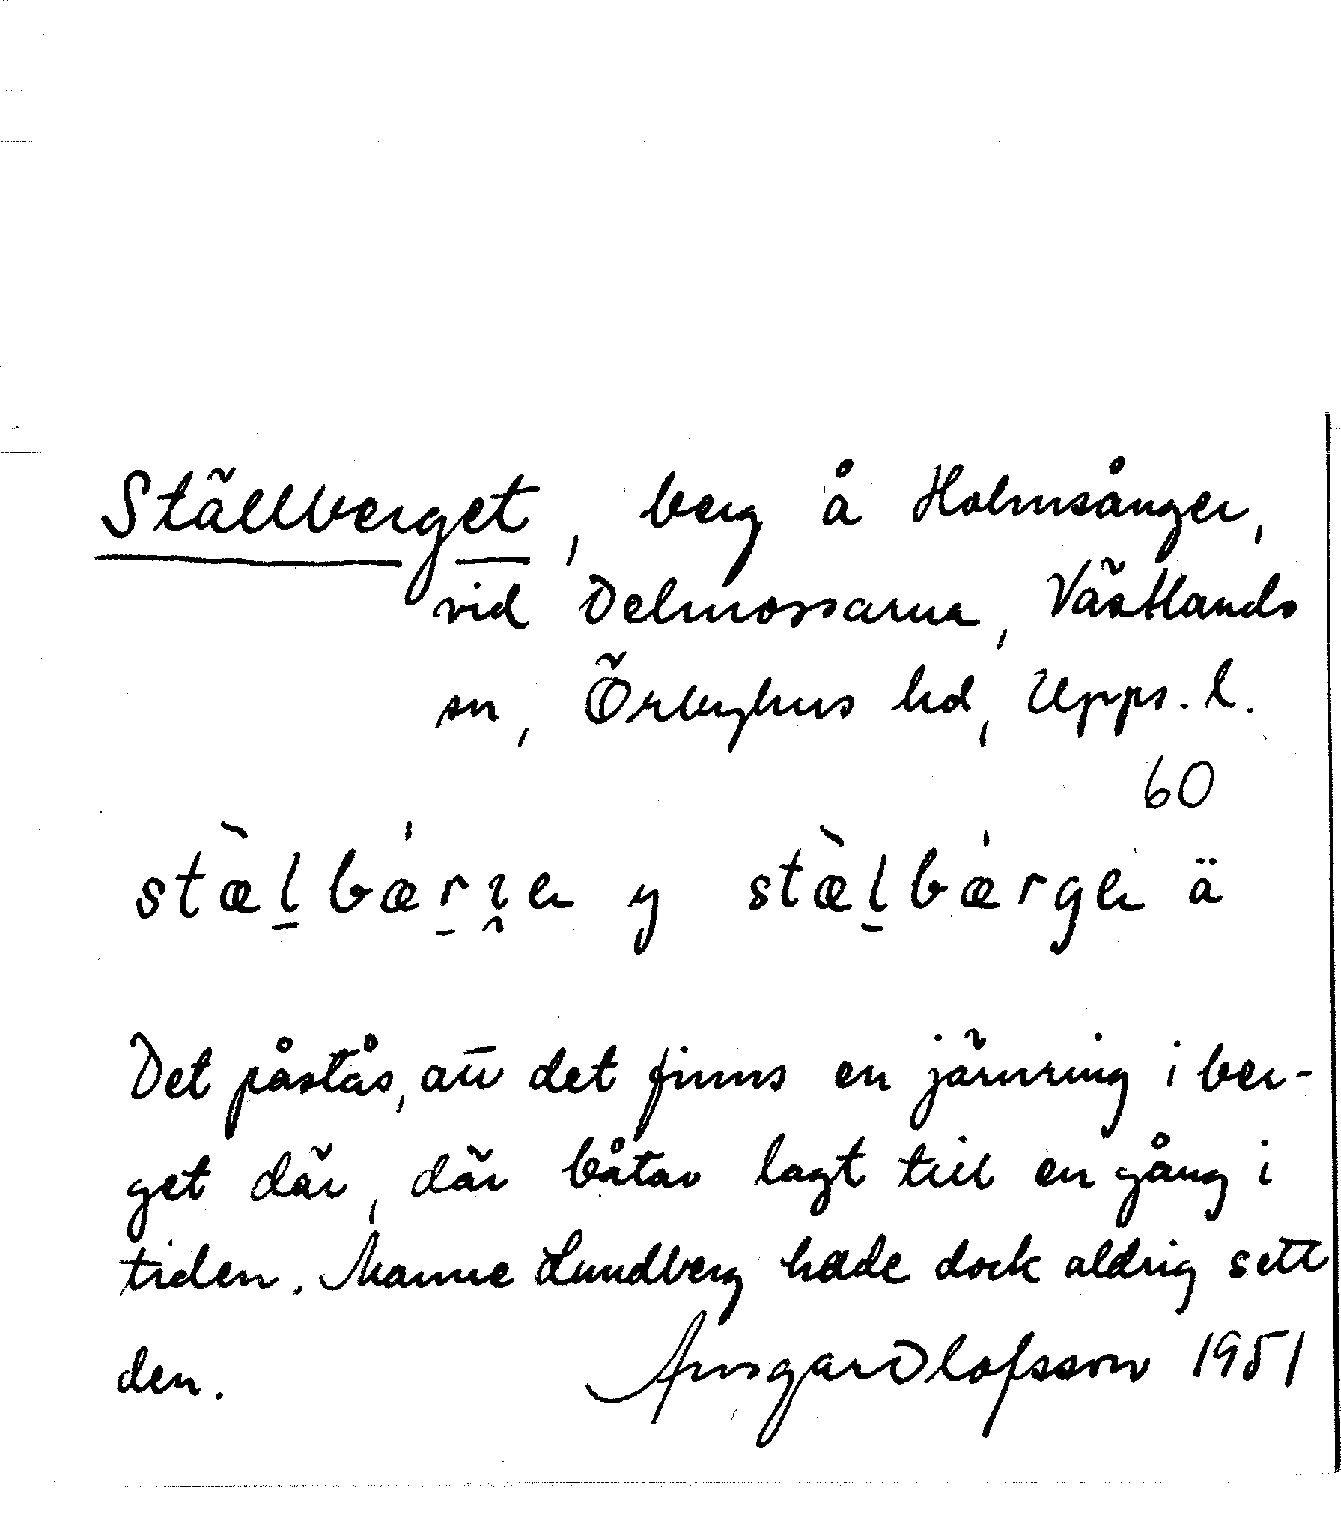 Ställberget, berg å Holmsånger,
vid Delmossarna, Västlands
sn, Örbyhus hd, Upps. l.
60
y ä
Det påstås, att det finns en järnring i ber-
get där, där båtar lagt till en gång i
tiden. Manne Lundberg hade dock aldrig sett
den. Ansgar Olofsson 1951